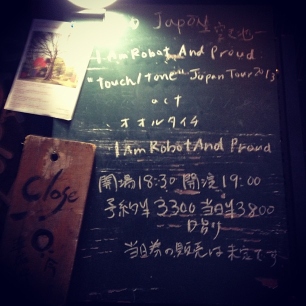 I Am Robot And Proud
"touch/tone" Japan Tour 2013
act
オオルタイチ
I Am Robot And Proud
開場 18:30 開演 19:00
予約¥3300 当日¥3800
D別
当日券の販売は未定です
Close